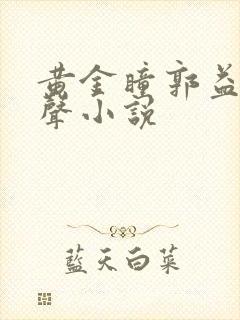 黃金瞳郭益
聲小說
藍天白菜